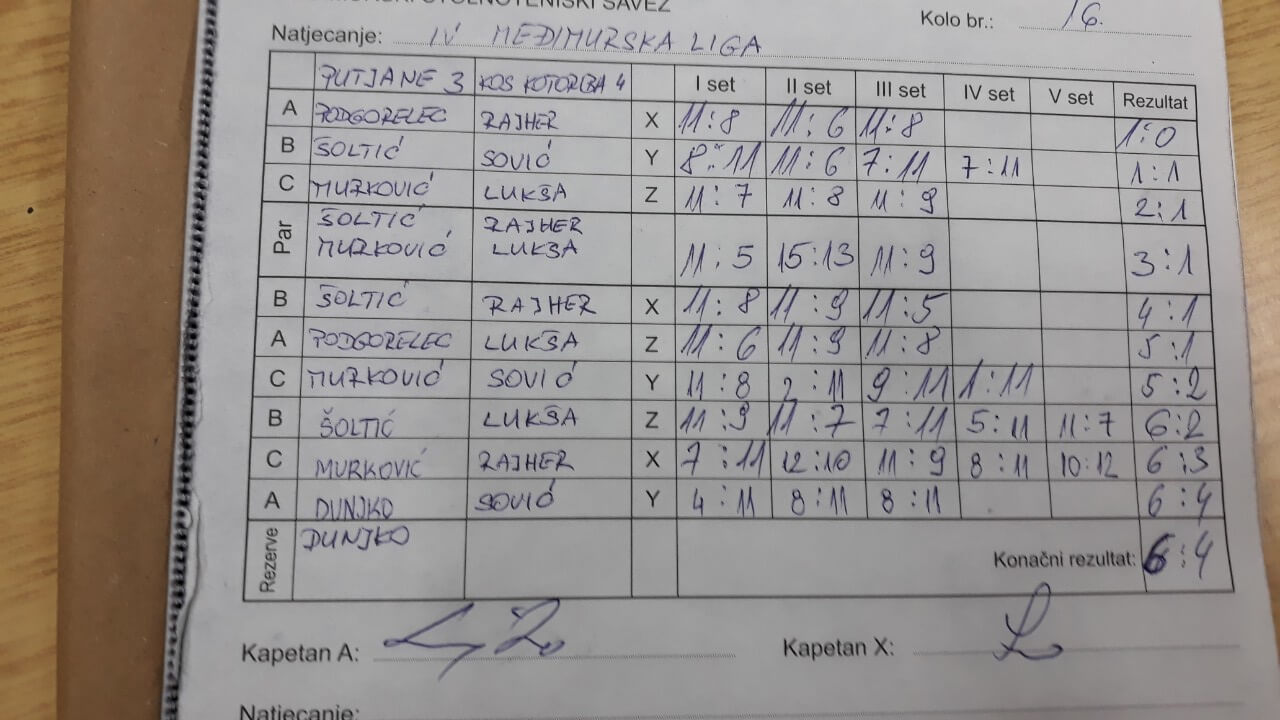 STOLNOTENISKI SAVEZ
Kolo br.: 16.
Natjecanje: IV MEĐIMURSKA LIGA
PUTJANE 3 KOS KOTORIBA 4 I set II set III set IV set V set Rezultat
A PODGORELEC RAJHER X 11:8 11:6 11:8 1:0
B ŠOLTIĆ SOVIĆ Y 8:11 11:6 7:11 7:11 1:1
C MURKOVIĆ LUKŠA Z 11:7 11:8 11:9 2:1
Par ŠOLTIĆ RAJHER
MURKOVIĆ LUKŠA 11:5 15:13 11:9 3:1
B ŠOLTIĆ RAJHER X 11:8 11:9 11:5 4:1
A PODGORELEC LUKŠA Z 11:6 11:9 11:8 5:1
C MURKOVIĆ SOVIĆ Y 11:8 2:11 9:11 1:11 5:2
B ŠOLTIĆ LUKŠA Z 11:9 11:7 7:11 5:11 11:7 6:2
C MURKOVIĆ RAJHER X 7:11 12:10 11:9 8:11 10:12 6:3
A DUNJKO SOVIĆ Y 4:11 8:11 8:11 6:4
Rezerve DUNJKO Konačni rezultat: 6:4
Kapetan A: Kapetan X:
Natjecanje: